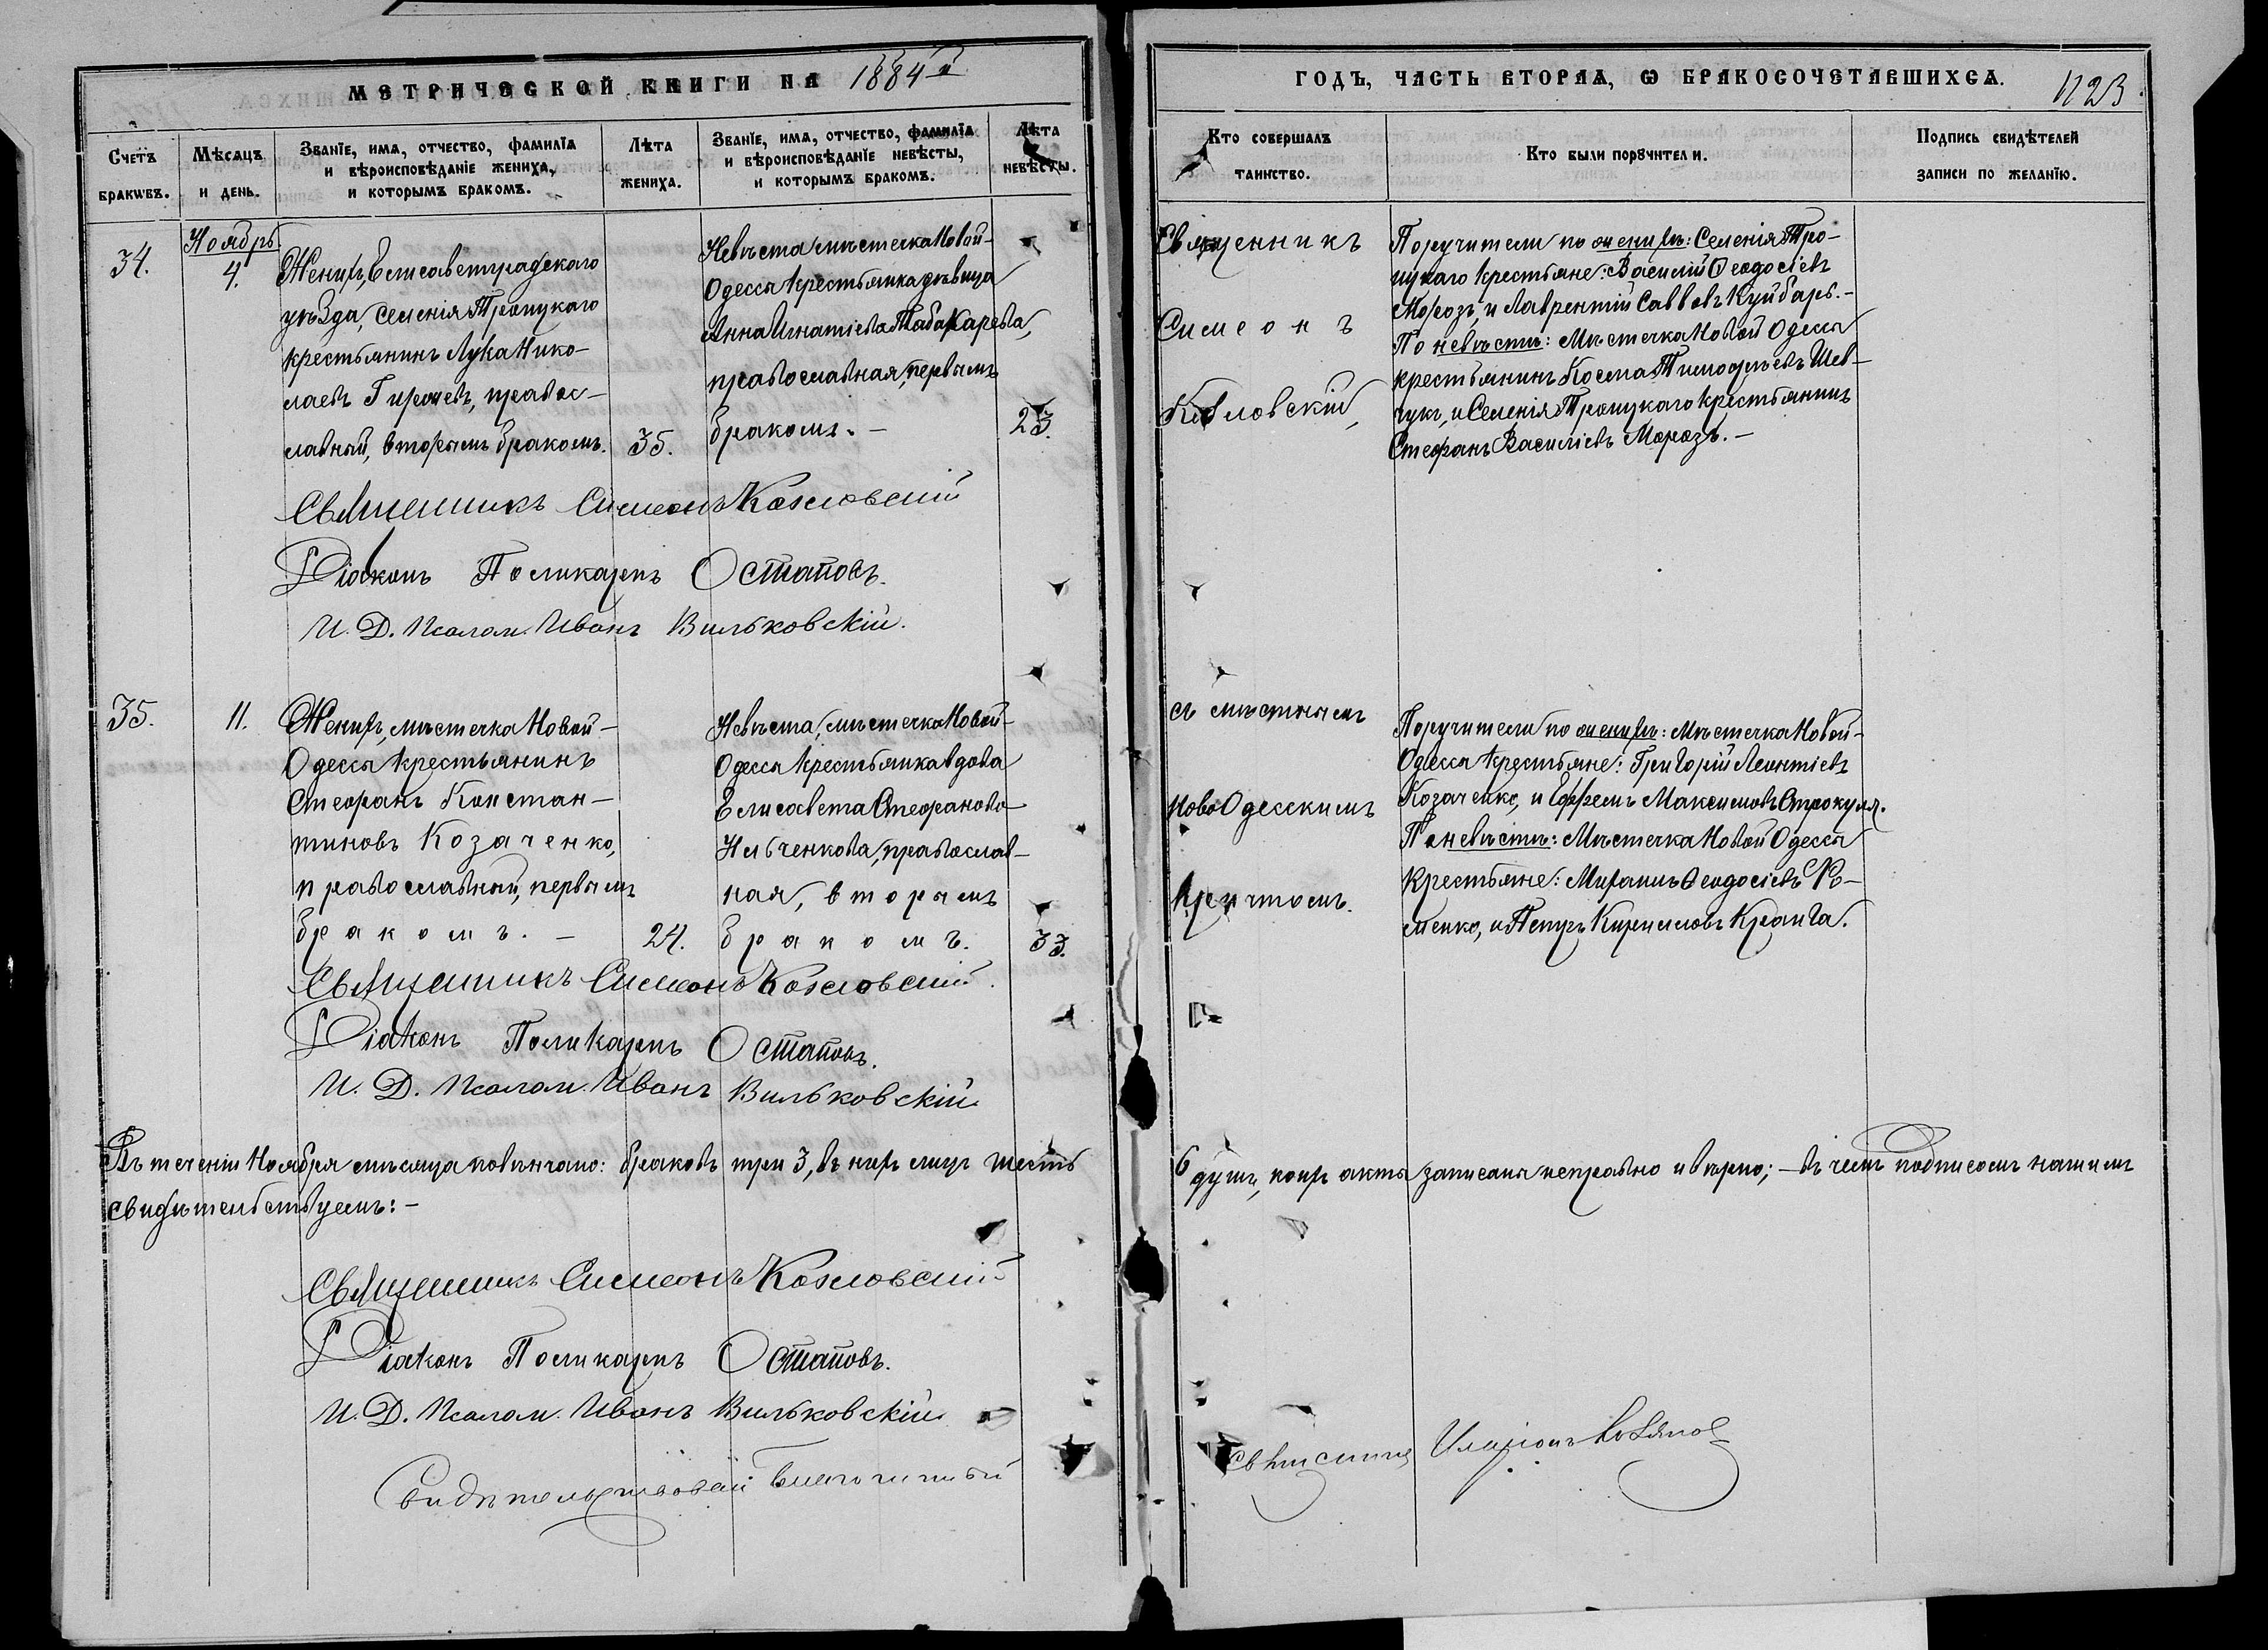 МЕТРИЧЕСКОЙ КНИГИ НА 1884й
Счетъ браковъ.
Мѣсяцъ и день.
Званіе, имя, отчество, фамилія и вѣроисповѣданіе жениха, и которымъ бракомъ.
Лѣта жениха.
Званіе, имя, отчество, фамилія и вѣроисповѣданіе невѣсты, и которымъ бракомъ.
Лѣта невѣсты.
34.
Ноябрь
4.
Женихъ, Елисаветградскаго
уѣзда, селенія Троицкаго
крестьянинъ Лука Нико-
лаевъ правос-
лавный, вторымъ бракомъ.
35.
Невѣста мѣстечка Новой-
Одессы крестьянка дѣвица
Анна Игнатіева Табакарева,
православная, первымъ
бракомъ. -
23.
Священникъ Симеонъ Козловскій
Діаконъ Поликарпъ Остаповъ.
И. Д. Псалом. Иванъ Вильковскій.
35.
11.
Женихъ, мѣстечка Новой-
Одессы крестьянинъ
Стефанъ Констан-
тиновъ Козаченко,
православный, первымъ
бракомъ. -
24.
Невѣста, мѣстечка Новой-
Одессы крестьянка вдова
Елисавета Стефанова
Ильченкова, православ-
ная, вторымъ
бракомъ.
33.
Священникъ Симеонъ Козловскій.
Діаконъ Поликарпъ Остаповъ.
И. Д. Псалом. Иванъ Вильковскій
Въ теченіи Ноября мѣсяца повѣнчано: браковъ три 3, въ нихъ лицъ шесть
свидѣтельствуемъ: -
Священникъ Симеонъ Козловскій
Діаконъ Поликарпъ Остаповъ.
И. Д. Псалом. Иванъ Вильковскій
Благочинный
ГОДЪ, ЧАСТЬ ВТОРАЯ, Ѡ БРАКОСОЧЕТАВШИХСЯ.
1123
Кто совершалъ таинство.
Кто были поручители.
Подпись свидѣтелей записи по желанію.
Священникъ
Симеонъ
Козловскій,
Поручители по женихѣ: Селенія Тро-
ицкаго крестьяне: Василій Ѳеодосіевъ
Морозъ, и Лаврентій Саввовъ Куйбарь. -
По невѣстѣ: Мѣстечка Новой Одессы
крестьянинъ Косма Тимофѣевъ Шев-
чукъ, и Селенія Троицкаго крестьянинъ
Стефанъ Василіевъ Морозъ. -
съ мѣстнымъ
НовоОдесскимъ
причтомъ.
Поручители по женихѣ: Мѣстечка Новой-
Одессы крестьяне: Григорій Леонтіевъ
Козаченко, и Ефремъ Максимовъ
По невѣстѣ: Мѣстечка Новой Одессы
крестьяне: Ѳеодосіевъ Ро-
менко, и Петръ Кирилловъ
6 душъ, коихъ акты записаны исправно и вѣрно; - въ чемъ подписомъ нашимъ
Иларіонъ